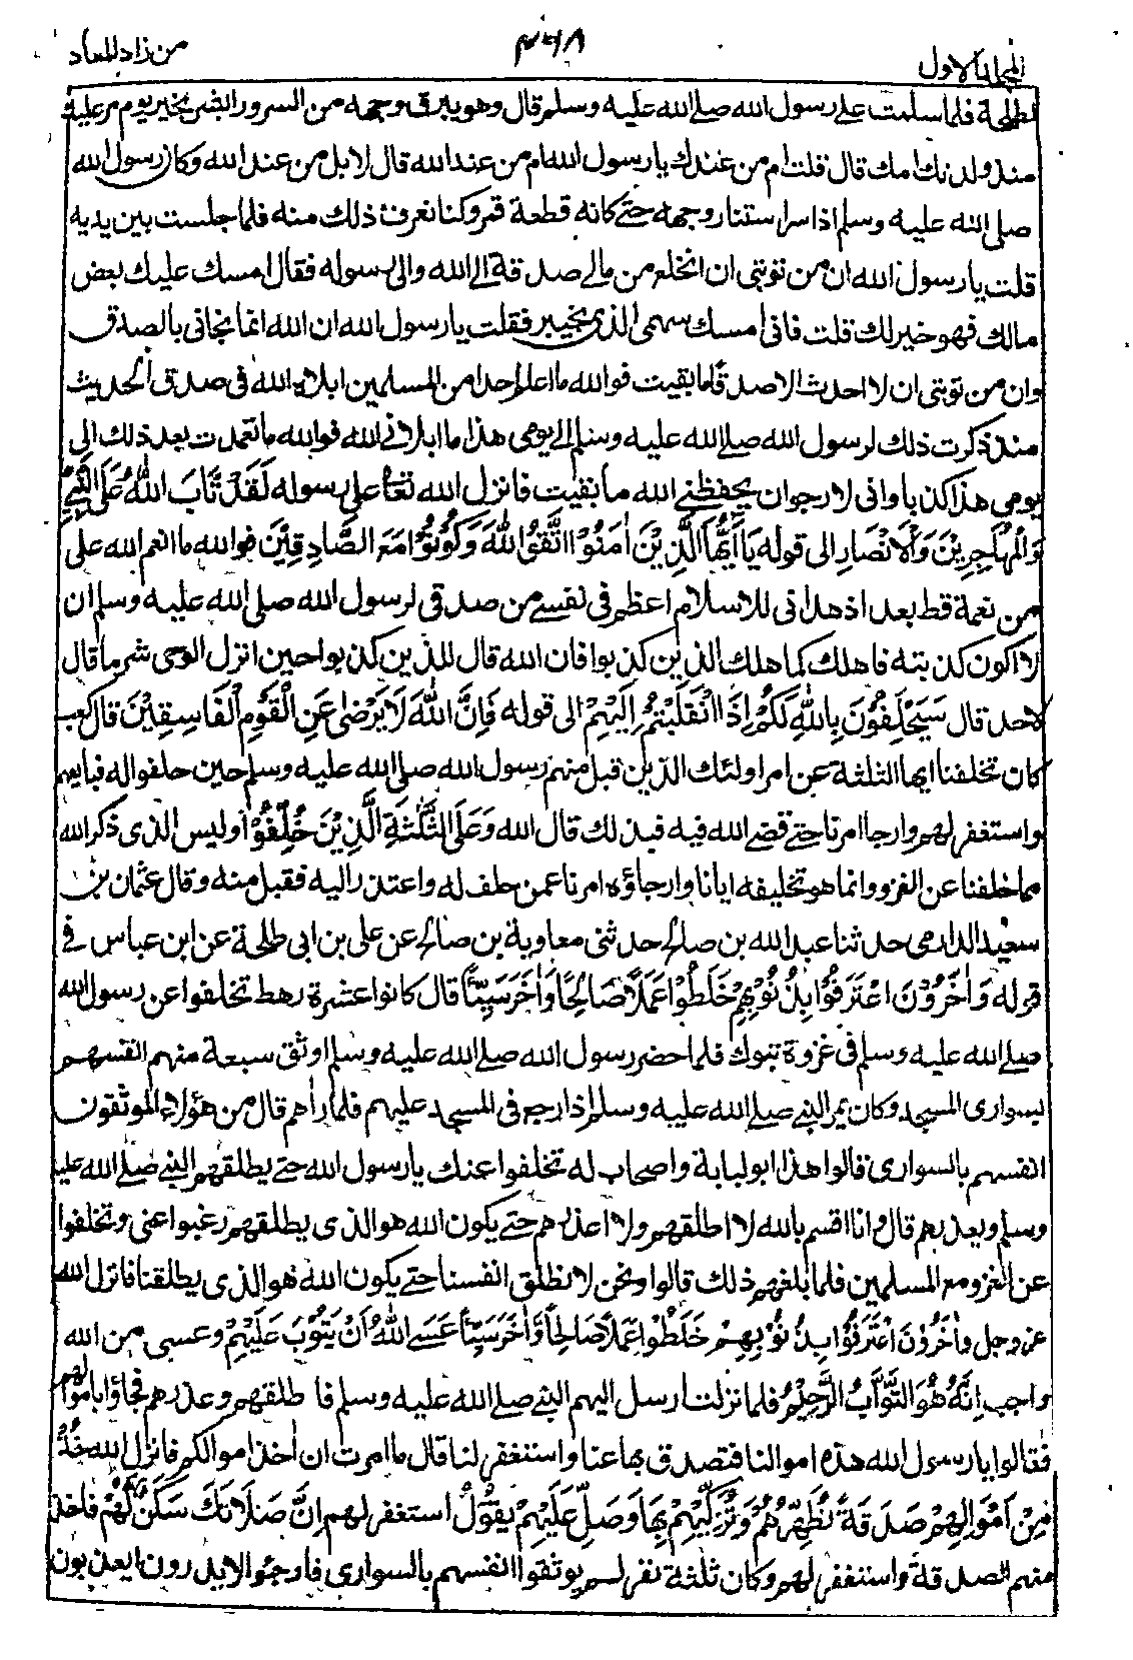 المجلد الاول
٤٦٨
من زاد المعاد
لطلحة فلما سلمت على رسول الله صلے الله عليه وسلم قال وهو يبرق وجهه من السرور ابشر بخير يوم مر عليك
منذ ولدتك امك قال قلت ام من عندك يا رسول الله ام من عند الله قال لا بل من عند الله وكان رسول الله
صلى الله عليه وسلم اذا سر استنار وجهه حتے كانه قطعة قمر وكنا نعرف ذلك منه فلما جلست بين يديه
قلت يا رسول الله ان من توبتى ان انخلع من مالے صدقة الے الله والى رسوله فقال امسك عليك بعض
مالك فهو خير لك قلت فانى امسك سهمى الذى بخيبر فقلت يا رسول الله ان الله انما نجانى بالصدق
وان من توبتى ان لا احدث الا صدقا ما بقيت فوالله ما اعلم احدا من المسلمين ابلاه الله فى صدق الحديث
منذ ذكرت ذلك لرسول الله صلے الله عليه وسلم الے يومى هذا ما ابلانے الله فوالله ما تعمدت بعد ذلك الى
يومى هذا كذبا وانى لارجو ان يحفظنے الله ما بقيت فانزل الله تعا على رسوله لَقَدْ تَّابَ اللهُ عَلَى النَّبِيِّ
وَالْمُهَاجِرِيْنَ وَالْاَنْصَارِ الى قوله يَا اَيُّهَا الَّذِيْنَ اٰمَنُوْا اتَّقُوا اللهَ وَكُوْنُوْا مَعَ الصَّادِقِيْنَ فوالله ما انعم الله على
من نعمة قط بعد اذ هدانى للاسلام اعظم فى نفسے من صدقى لرسول الله صلى الله عليه وسلم ان
لا اكون كذبته فاهلك كما هلك الذين كذبوا فان الله قال للذين كذبوا حين انزل الوحى شر ما قال
لاحد قال سَيَحْلِفُوْنَ بِاللهِ لَكُمْ اِذَا انْقَلَبْتُمْ اِلَيْهِمْ الى قوله فَاِنَّ اللهَ لَا يَرْضٰى عَنِ الْقَوْمِ الْفَاسِقِيْنَ قال كعب
كان تخلفنا ايها الثلثة عن امر اولئك الذين قبل منهم رسول الله صلے الله عليه وسلم حين حلفوا له فبايعهم
واستغفر لهم وارجا امرنا حتے قضے الله فيه فبذلك قال الله وَعَلَى الثَّلٰثَةِ الَّذِيْنَ خُلِّفُوْا وليس الذى ذكر الله
مما خلفنا عن الغزو وانما هو تخليفه ايانا وارجاؤه امرنا عمن حلف له واعتذر اليه فقبل منه وقال عثمان بن
سعيد الدارمى حدثنا عبد الله بن صالح حدثنى معاوية بن صالح عن على بن ابى طلحة عن ابن عباس فے
قوله وَاٰخَرُوْنَ اعْتَرَفُوْا بِذُنُوْبِهِمْ خَلَطُوْا عَمَلًا صَالِحًا وَاٰخَرَ سَيِّئًا قال كانوا عشرة رهط تخلفوا عن رسول الله
صلے الله عليه وسلم فى غزوة تبوك فلما حضر رسول الله صلے الله عليه وسلم اوثق سبعة منهم انفسهم
بسوارى المسجد وكان يمر النبے صلے الله عليه وسلم اذا رجع فى المسجد عليهم فلما راهم قال من هؤلاء الموثقون
انفسهم بالسوارى قالوا هذا ابو لبابة واصحاب له تخلفوا عنك يا رسول الله حتے يطلقهم النبے صلے الله عليه
وسلم ويعذرهم قال وانا اقسم بالله لا اطلقهم ولا اعذرهم حتے يكون الله هو الذى يطلقهم رغبوا عنى وتخلفوا
عن الغزو مع المسلمين فلما بلغهم ذلك قالوا ونحن لا نطلق انفسنا حتے يكون الله هو الذى يطلقنا فانزل الله
عز وجل وَاٰخَرُوْنَ اعْتَرَفُوْا بِذُنُوْبِهِمْ خَلَطُوْا عَمَلًا صَالِحًا وَّاٰخَرَ سَيِّئًا عَسَے اللهُ اَنْ يَتُوْبَ عَلَيْهِمْ وعسى من الله
واجب اِنَّهٗ هُوَ التَّوَّابُ الرَّحِيْمُ فلما نزلت ارسل اليهم النبے صلے الله عليه وسلم فاطلقهم وعذرهم فجاؤا باموالهم
فقالوا يا رسول الله هذه اموالنا فتصدق بها عنا واستغفر لنا قال ما امرت ان اخذ اموالكم فانزل الله خُذْ
مِنْ اَمْوَالِهِمْ صَدَقَةً تُطَهِّرُهُمْ وَتُزَكِّيْهِمْ بِهَا وَصَلِّ عَلَيْهِمْ يقول استغفر لهم اِنَّ صَلَاتَكَ سَكَنٌ لَّهُمْ فاخذ
منهم الصدقة واستغفر لهم وكان ثلثة نفر لم يوثقوا انفسهم بالسوارى فارجئوا لا يدرون ايعذبون